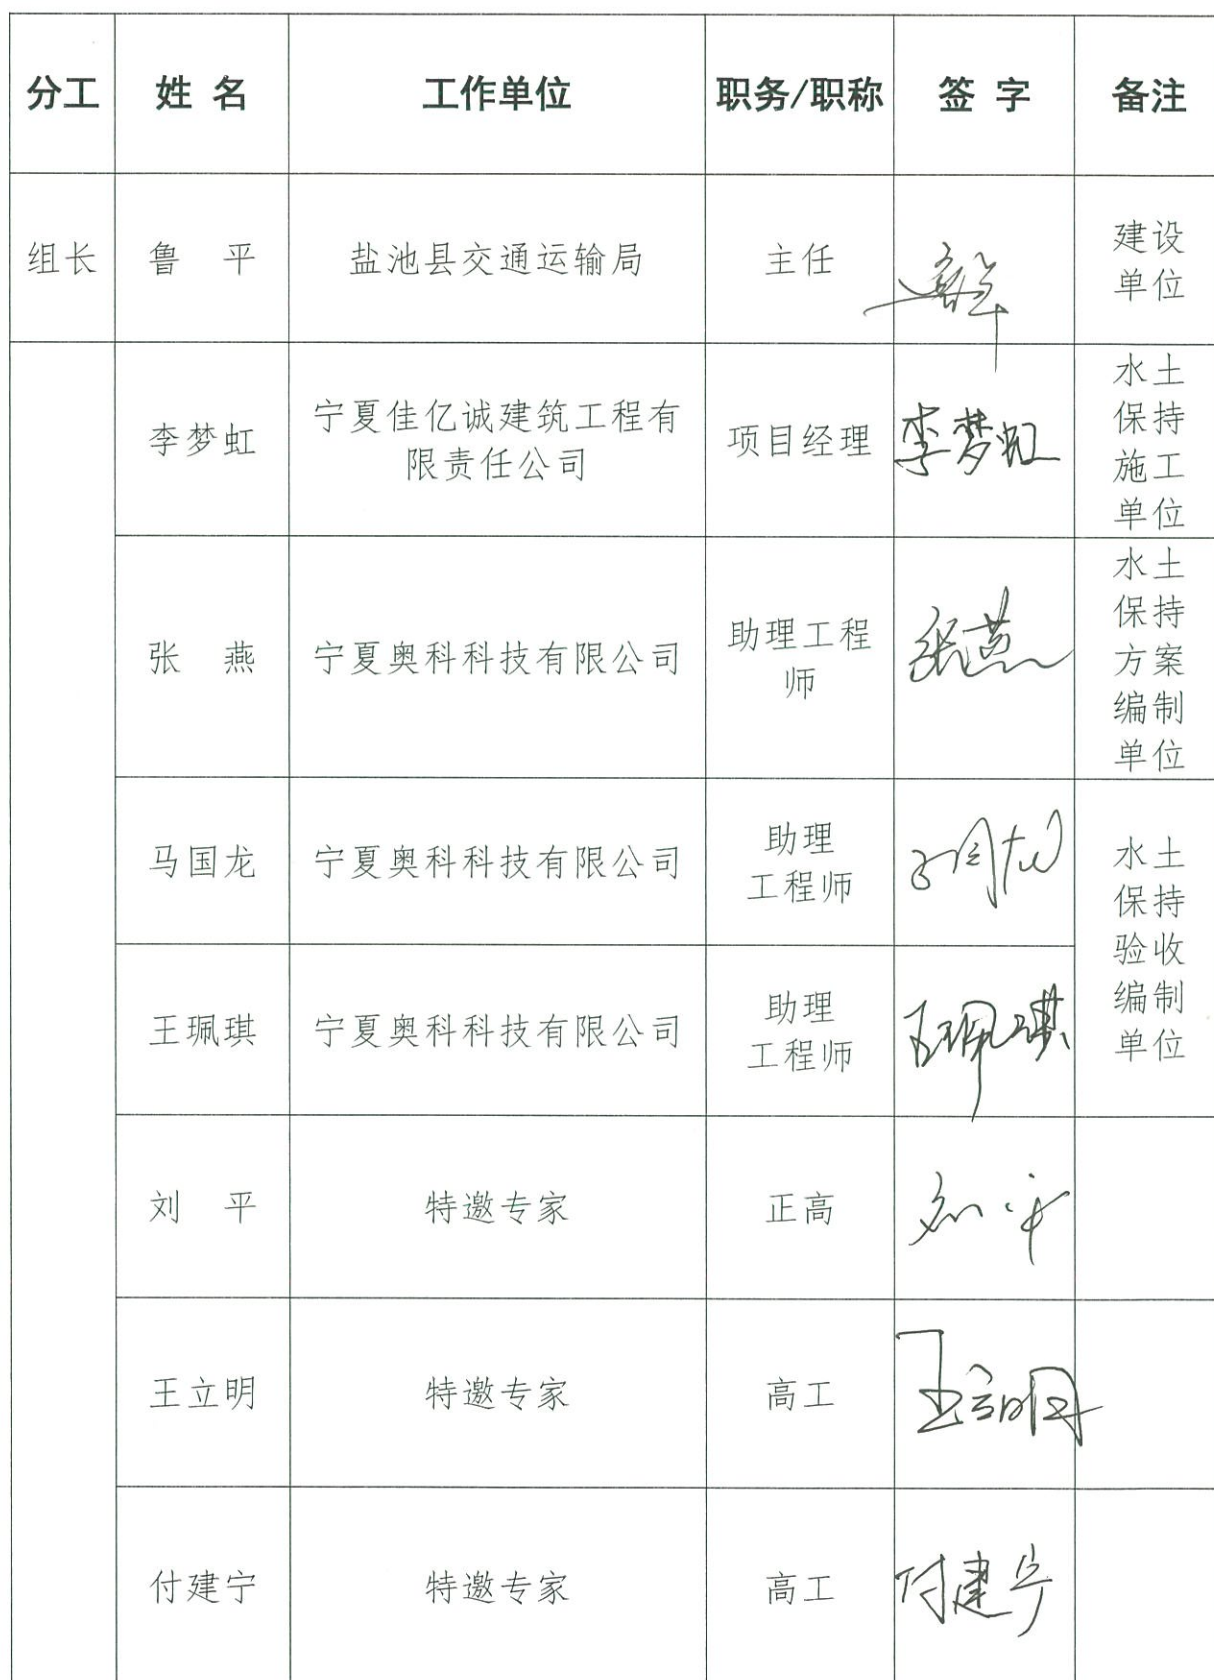 分工 姓 名 工作单位 职务/职称 签 字 备注
组长 鲁 平 盐池县交通运输局 主任 建设
单位
李梦虹 宁夏佳亿诚建筑工程有
限责任公司 项目经理 李梦虹 水土
保持
施工
单位
张 燕 宁夏奥科科技有限公司 助理工程
师 张燕 水土
保持
方案
编制
单位
马国龙 宁夏奥科科技有限公司 助理
工程师 马国龙 水土
保持
验收
编制
单位
王珮琪 宁夏奥科科技有限公司 助理
工程师 王珮琪
刘 平 特邀专家 正高 刘平
王立明 特邀专家 高工 王立明
付建宁 特邀专家 高工 付建宁